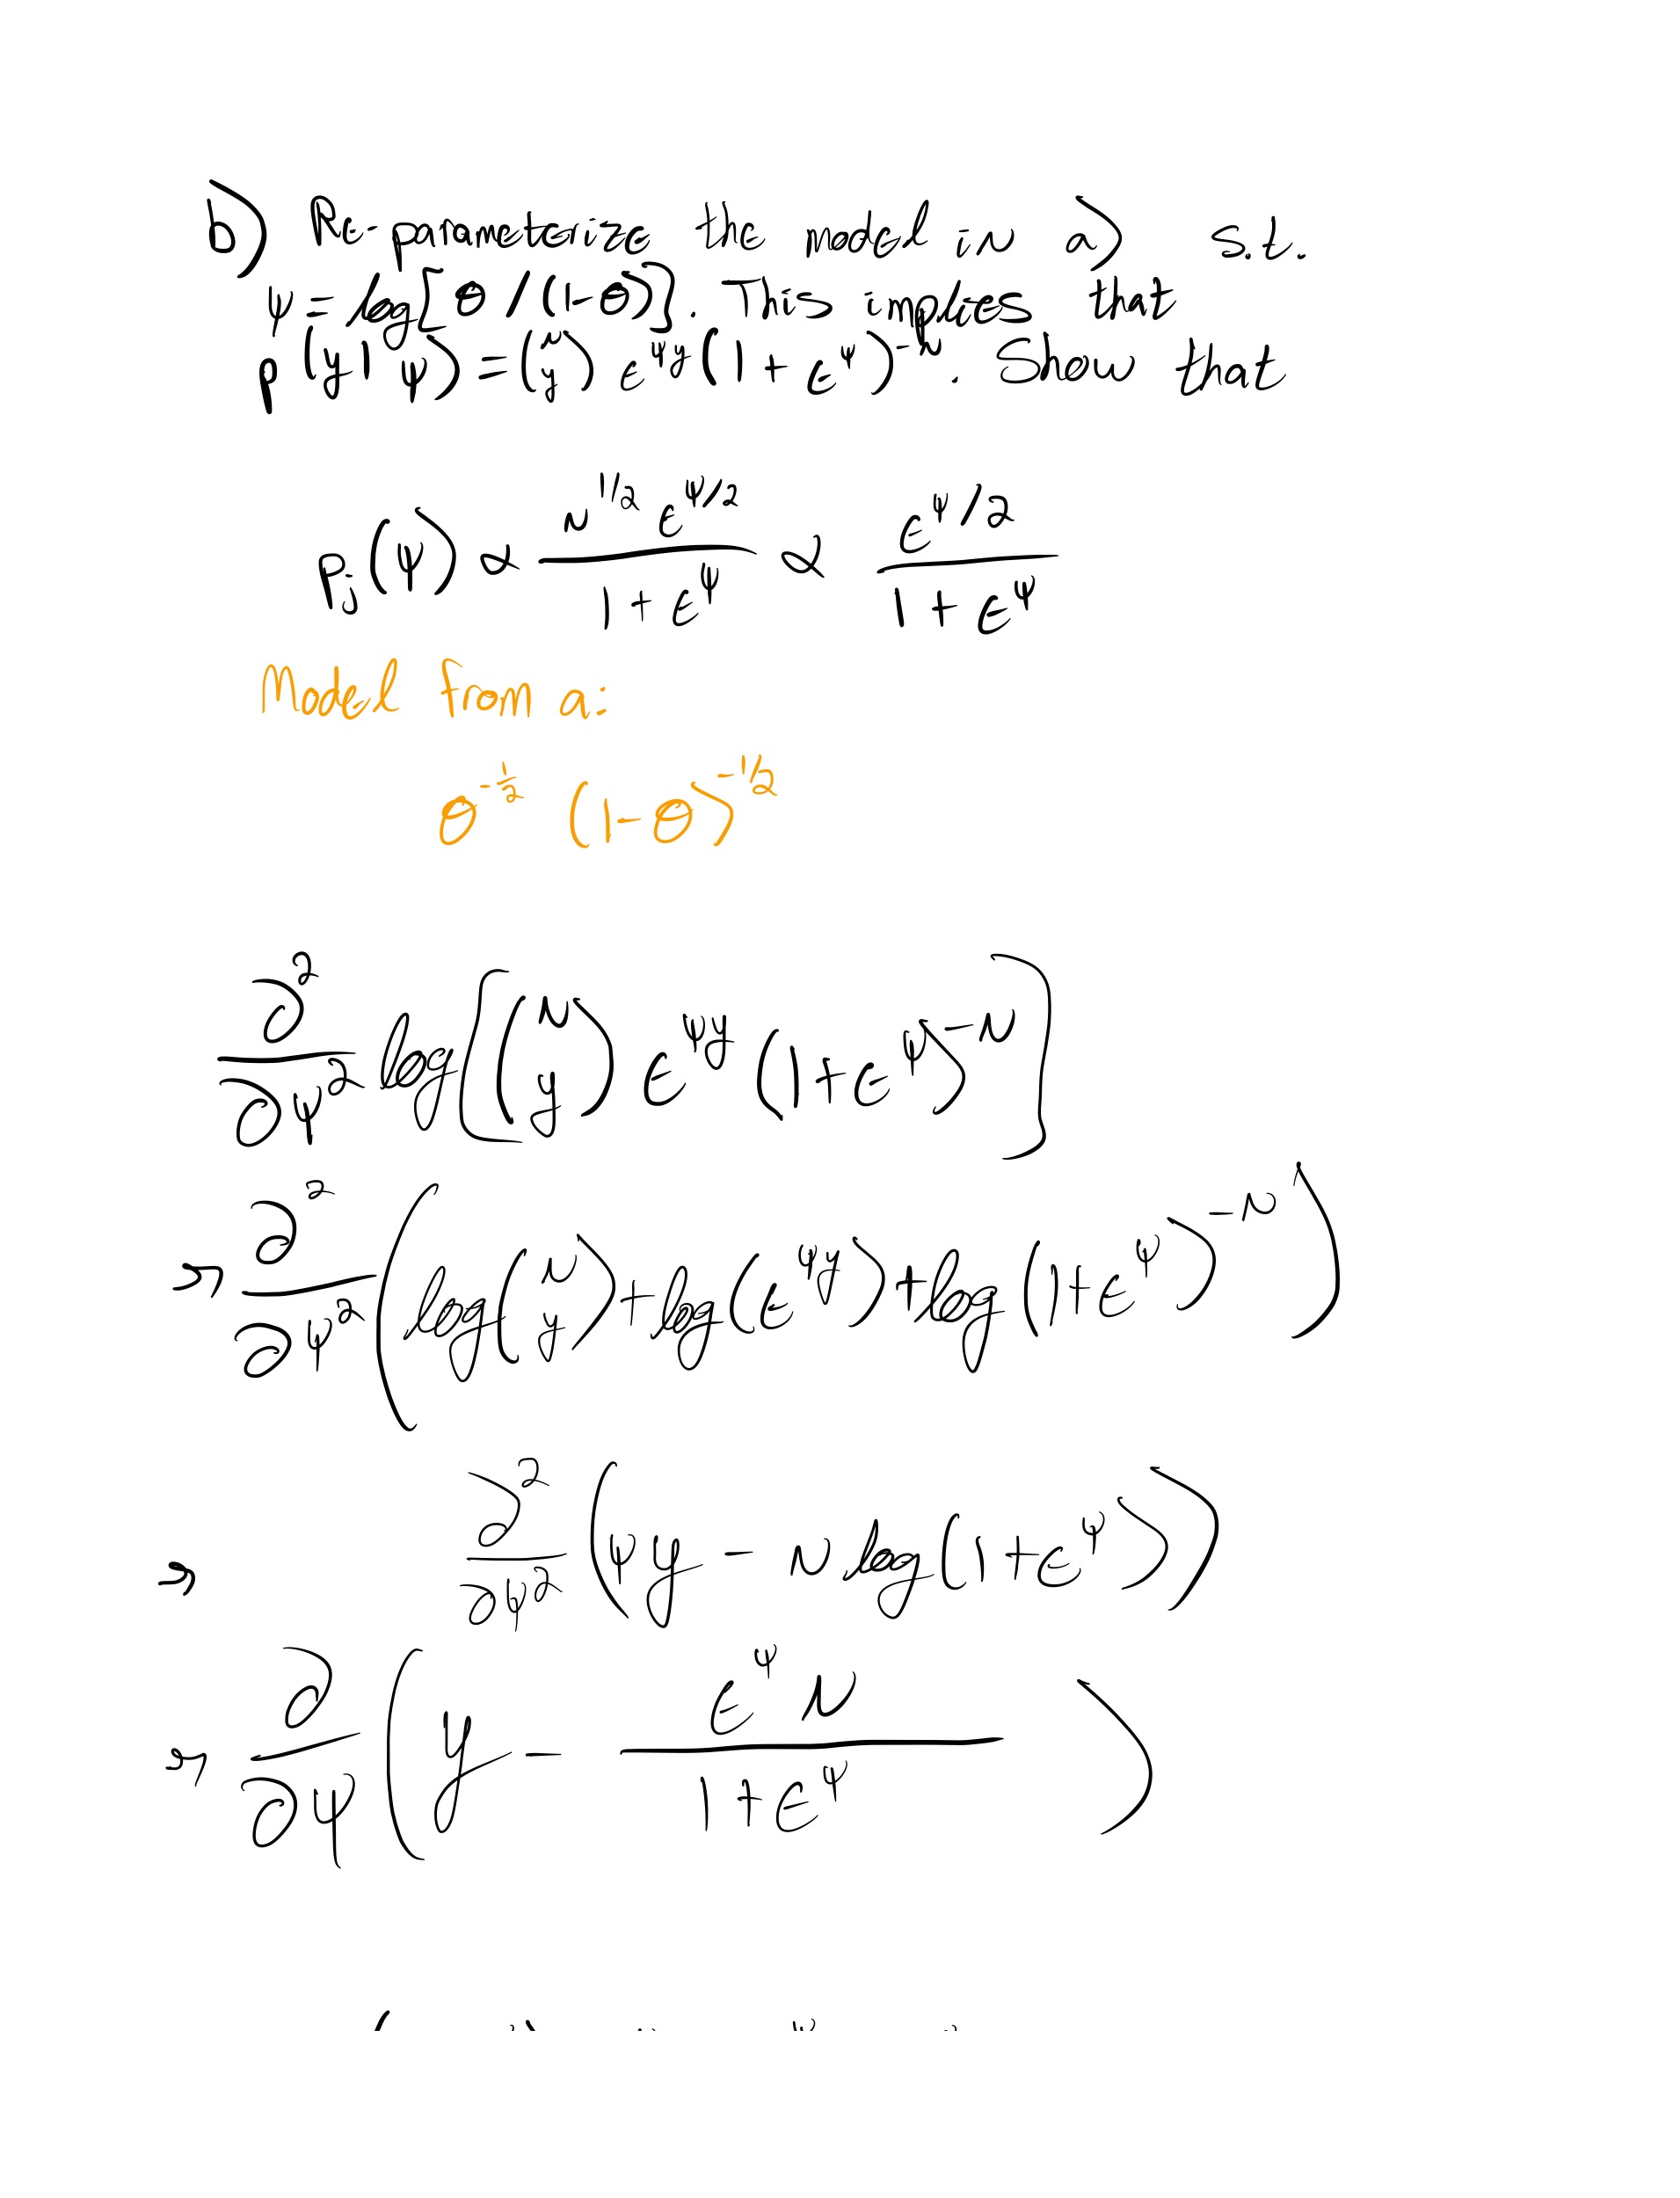 b) Re-parameterize the model in a) s.t.
ψ = log[θ / (1-θ)]. This implies that
p(y|ψ) = (n y) e^{ψy} (1 + e^ψ)^{-n}. Show that
p_j(ψ) ∝ n^{1/2} e^{ψ/2} / (1 + e^ψ) ∝ e^{ψ/2} / (1 + e^ψ)
Model from a:
θ^{-1/2} (1-θ)^{-1/2}
∂²/∂ψ² log[(n y) e^{ψy} (1+e^ψ)^{-n}]
→ ∂²/∂ψ² (log(n y) + log(e^{ψy}) + log(1+e^ψ)^{-n})
→ ∂²/∂ψ² (ψy - n log(1+e^ψ))
→ ∂/∂ψ (y - e^ψ n / (1+e^ψ))